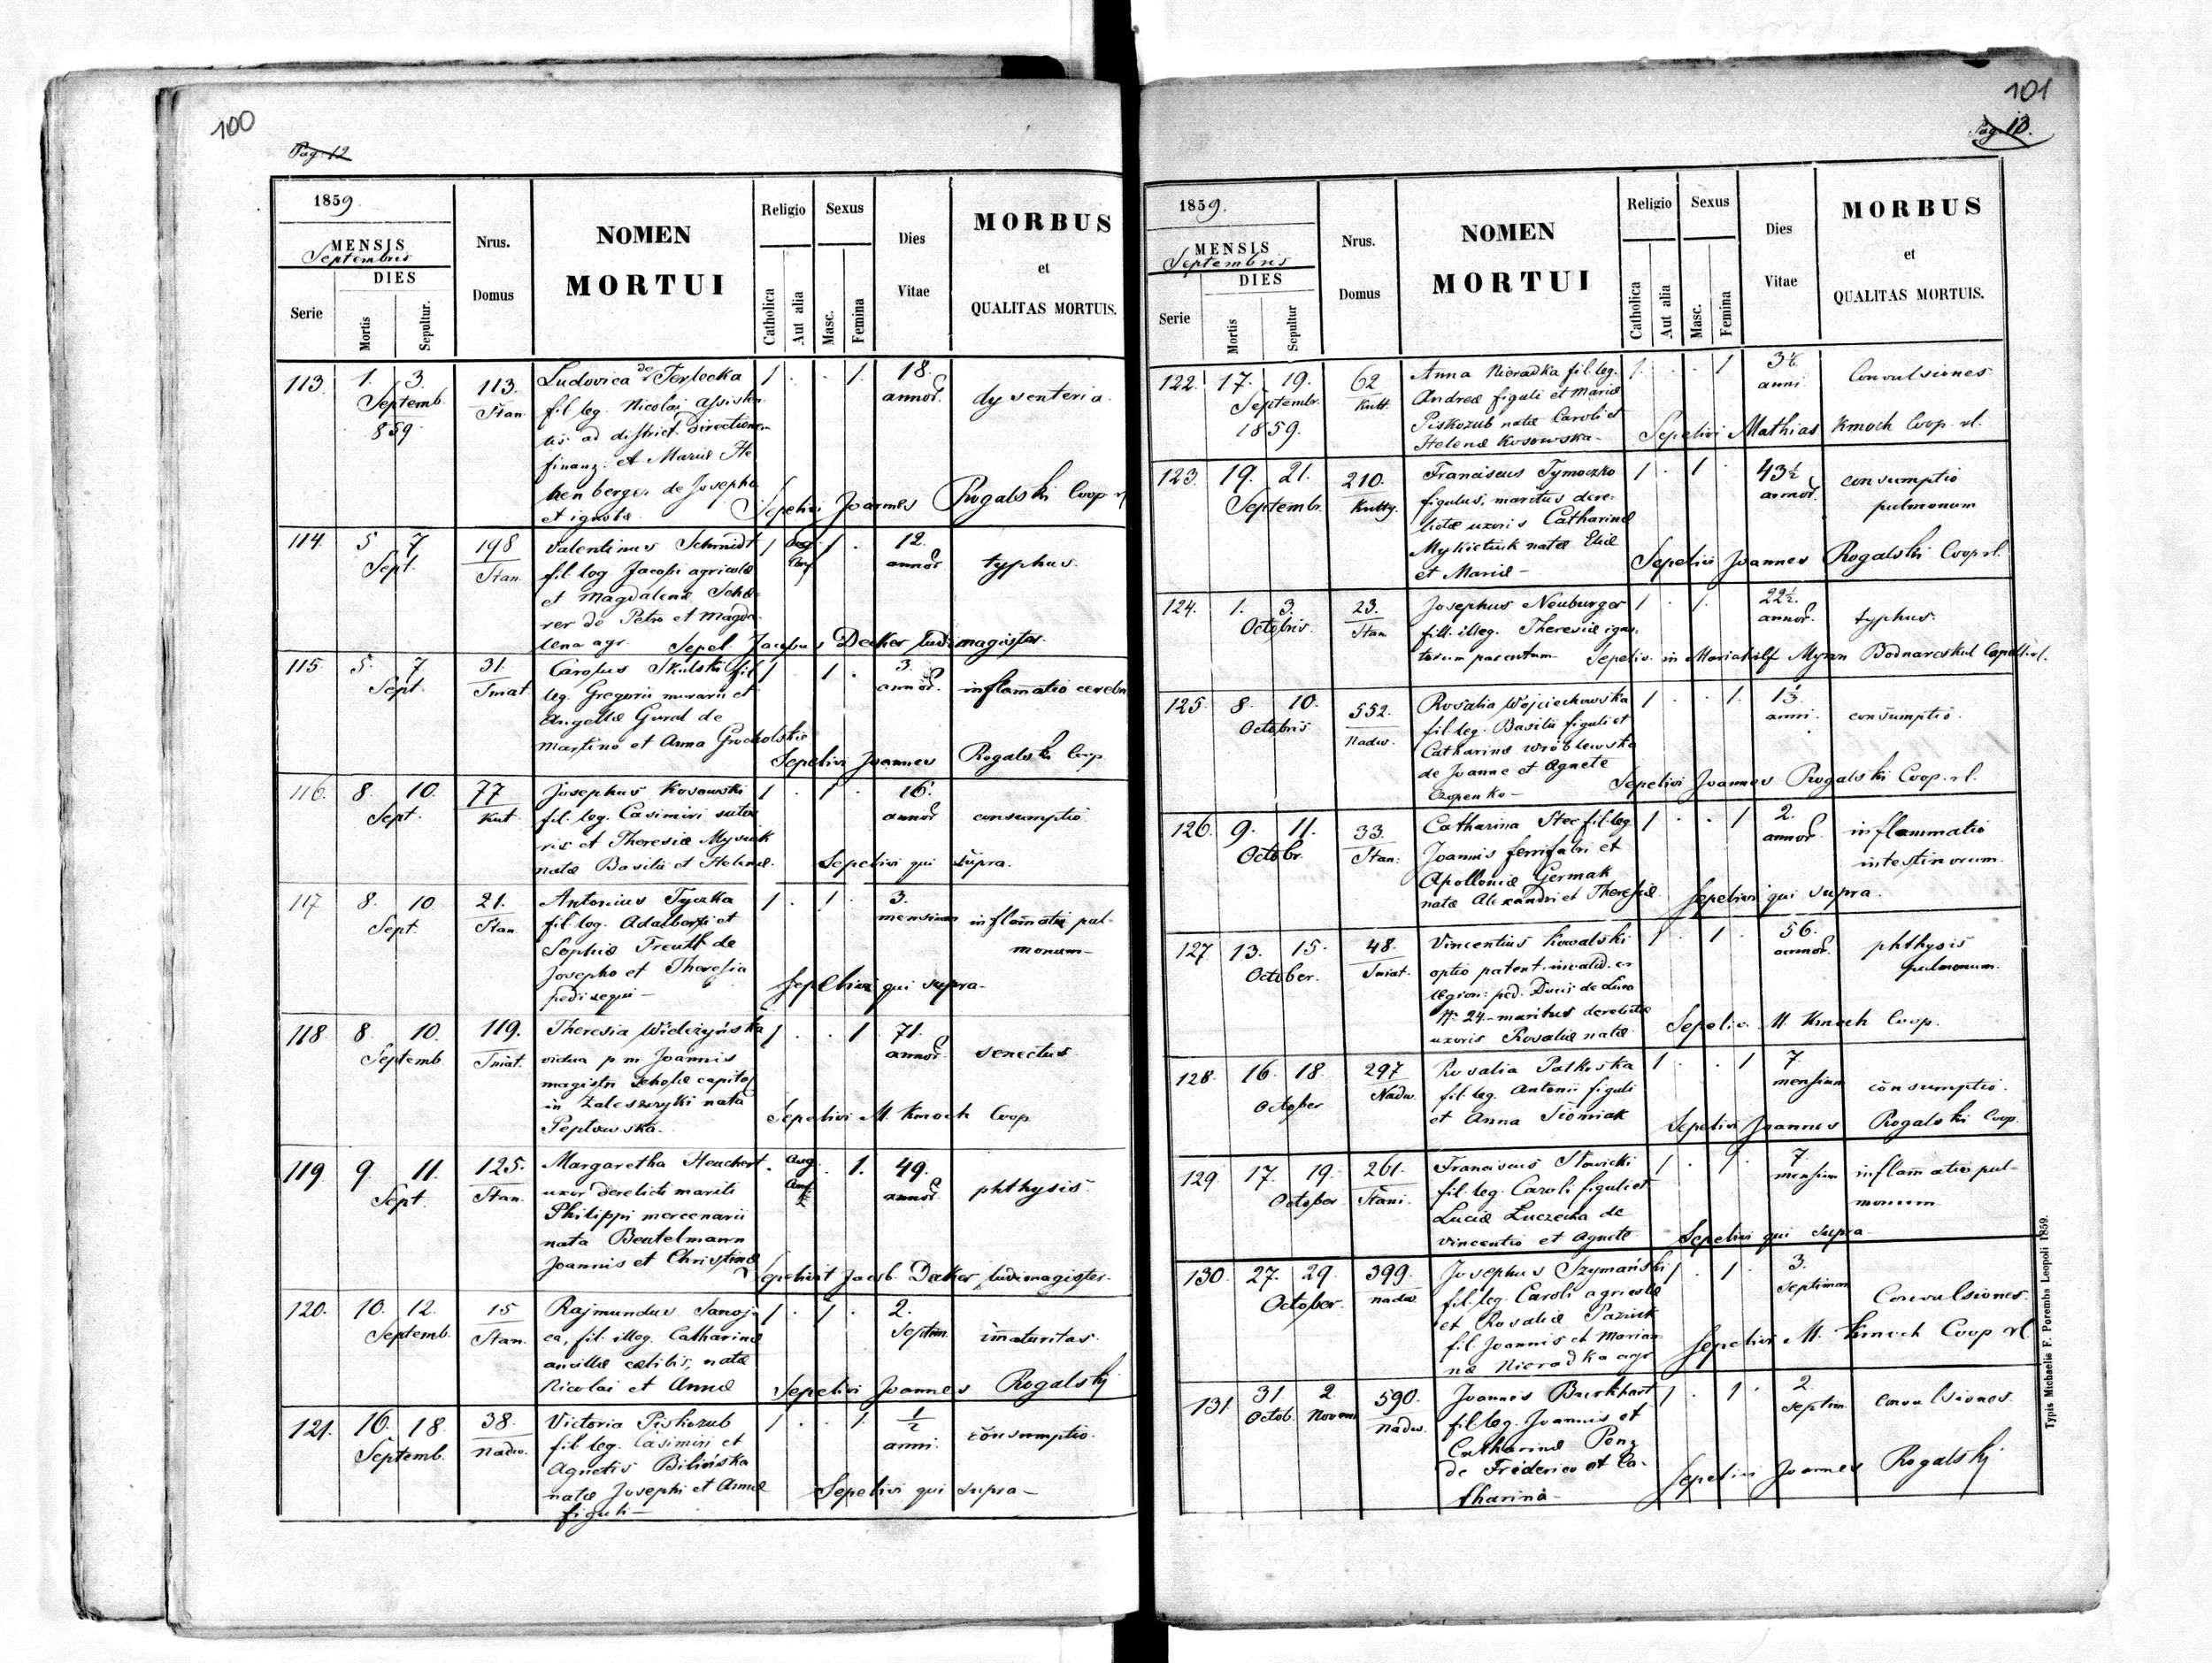 100
Pag. 12
1859.
MENSIS
Septembris
DIES
Serie
Mortis
Sepultur.
Nrus.
Domus
NOMEN
MORTUI
Religio
Catholica
Aut alia
Sexus
Masc.
Femina
Dies
Vitae
MORBUS
et
QUALITAS MORTUIS.
113. 1. 3. Septemb. 859.
113. Stan
Ludovica de Terlecka
fil leg. Nicolai assisten
tis ad district. directionem
finanz: et Mariæ He
henberger de Josepho
et ignota
1 . . 1. 18. annor. dysenteria.
Sepelivi Joannes Rogalski Coop rl
114. 5 7 Sept.
198 Stan
Valentinus Schmidt
fil leg Jacobi agricolæ
et Magdalenæ Sche
rer de Petro et Magda
lena agr.
1 Aug Conf 1 . 12. annor. typhus.
Sepel. Jacobus Decker ludimagister.
115. 5. 7 Sept.
31. Sniat.
Carolus Skulski fil
leg. Gregorii murarii et
Angellæ Gural de
Martino et Anna Grocholskie
1 . 1 . 3. annor. inflamatio cerebri
Sepelivi Joannes Rogalski Coop
116. 8. 10. Sept.
77 Kut.
Josephus Kosowski
fil. leg. Casimiri suto
ris et Theresiæ Mysiuk
natæ Basilii et Helenæ.
1 . 1 . 16. annor consumptio
Sepelivi qui supra.
117 8. 10 Sept.
21. Stan
Antonius Tyczka
fil. leg. Adalberti et
Sophiæ Freulk de
Josepho et Theresia
pedisequi —
1 . 1 . 3. mensium inflamatio pul-
monum —
Sepelivi qui supra —
118 8 10. Septemb.
119. Sniat.
Theresia Wielczyńska
vidua p m Joannis
magistri scholæ capital
in Zaleszczyki nata
Peptowska.
1 . . 1 71. annor. senectus
Sepelivi M. Kmoch Coop
119. 9. 11. Sept.
125. Stan.
Margaretha Heuchert
uxor derelicti mariti
Philippi mercenarii
nata Beutelmann
Joannis et Christinæ
. Aug Conf . 1. 49. annor. phthysis.
Sepelivit Jacob. Decker, ludimagister.
120. 10. 12. Septemb.
15 Stan.
Rajmundus Sanoj-
ca, fil. illeg. Catharinæ
ancillæ cælibis, natæ
Nicolai et Annæ
1 . 1 . 2. Septim. imaturitas.
Sepelivi Joannes Rogalski
121. 16. 18. Septemb.
38. Nadw.
Victoria Piskozub
fil leg. Casimiri et
Agnetis Bilińska
natæ Josephi et Annæ
figuli —
1 . . 1. 1/2 anni. consumptio.
Sepelivi qui supra —
101
Pag. 13.
1859.
MENSIS
Septembris
DIES
Serie
Mortis
Sepultur
Nrus.
Domus
NOMEN
MORTUI
Religio
Catholica
Aut alia
Sexus
Masc.
Femina
Dies
Vitae
MORBUS
et
QUALITAS MORTUIS.
122. 17. 19. Septembr. 1859.
62 Kutt.
Anna Nieradka fil. leg.
Andreæ figuli et Mariæ
Piskozub natæ Caroli et
Helenæ Kosowska —
1. . . 1 anni. Convulsiones
Sepelivi Mathias Kmoch Coop. rl.
123. 19. 21. Septembr.
210. Kutty.
Franciscus Tymoczko
figulus, maritus dere-
lictæ uxoris Catharinæ
Mykietiuk natæ Eliæ
et Mariæ —
1 . 1 . 43½ annor. consumptio
pulmonum
Sepelivi Joannes Rogalski Coop rl.
124. 1. 3. Octobris.
23. Stan.
Josephus Neuburger
fill. illeg. Theresiæ igno
torum parentum
1 . 1. 22½. annor. typhus.
Sepeliv. in Mariahilf Myron Bodnarczkul Capell. rl.
125. 8. 10. Octobris
552. Nadw.
Rosalia Wojciechowska
fil. leg. Basilii figuli et
Catharinæ Wróblewska
de Joanne et Agnete
Czopenko —
1 . . 1. anni. consumptio.
Sepelivi Joannes Rogalski Coop. rl.
126. 9. 11. Octobr.
33. Stan:
Catharina Stec fil. leg
Joannis ferrifabri et
Apolloniæ Germak
natæ Alexandri et Theresiæ.
1 . . 1 2. annor. inflammatio
intestinorum.
Sepelivi qui supra.
127. 13. 15. October.
48. Sniat.
Vincentius Kowalski
optio patent. invalid. ex
legion: ped. Ducis de Luca
N: 24 — maritus derelictæ
uxoris Rosaliæ natæ
1 . 1 . 56. annor. phthysis
pulmonum.
Sepelivi M. Kmoch Coop.
128. 16. 18. October
297 Nadw.
Rosalia Patkoska
fil. leg. Antonii figuli
et Anna Siomiak
1 . . 1 7 mensium consumptio.
Sepelivi Joannes Rogalski Coop.
129. 17. 19. October
261. Stani.
Franciscus Słowicki
fil. leg. Caroli figuli et
Luciæ Luczecka de
Vincentio et Agnete
1 . 1 . 7. mensium inflamatio pul-
monum
Sepelivi qui supra
130. 27. 29. October.
399. nadw.
Josephus Szymański
fil. leg. Caroli agricolæ
et Rosaliæ Paziuk
fil. Joannis et Marian
næ Nieradka agr
1 . 1 3. septiman Convulsiones.
Sepelivi M. Kmoch Coop rl
131. 31. Octob. 2 Novem
590. Nadw.
Joannes Burkhart
fil. leg. Joannis et
Catharinæ Penz
de Friderico et Ca-
tharina —
1 . 1 . 2. Septim. convulsiones.
Sepelivi Joannes Rogalski
Typis Michaelis F. Poremba Leopoli 1859.